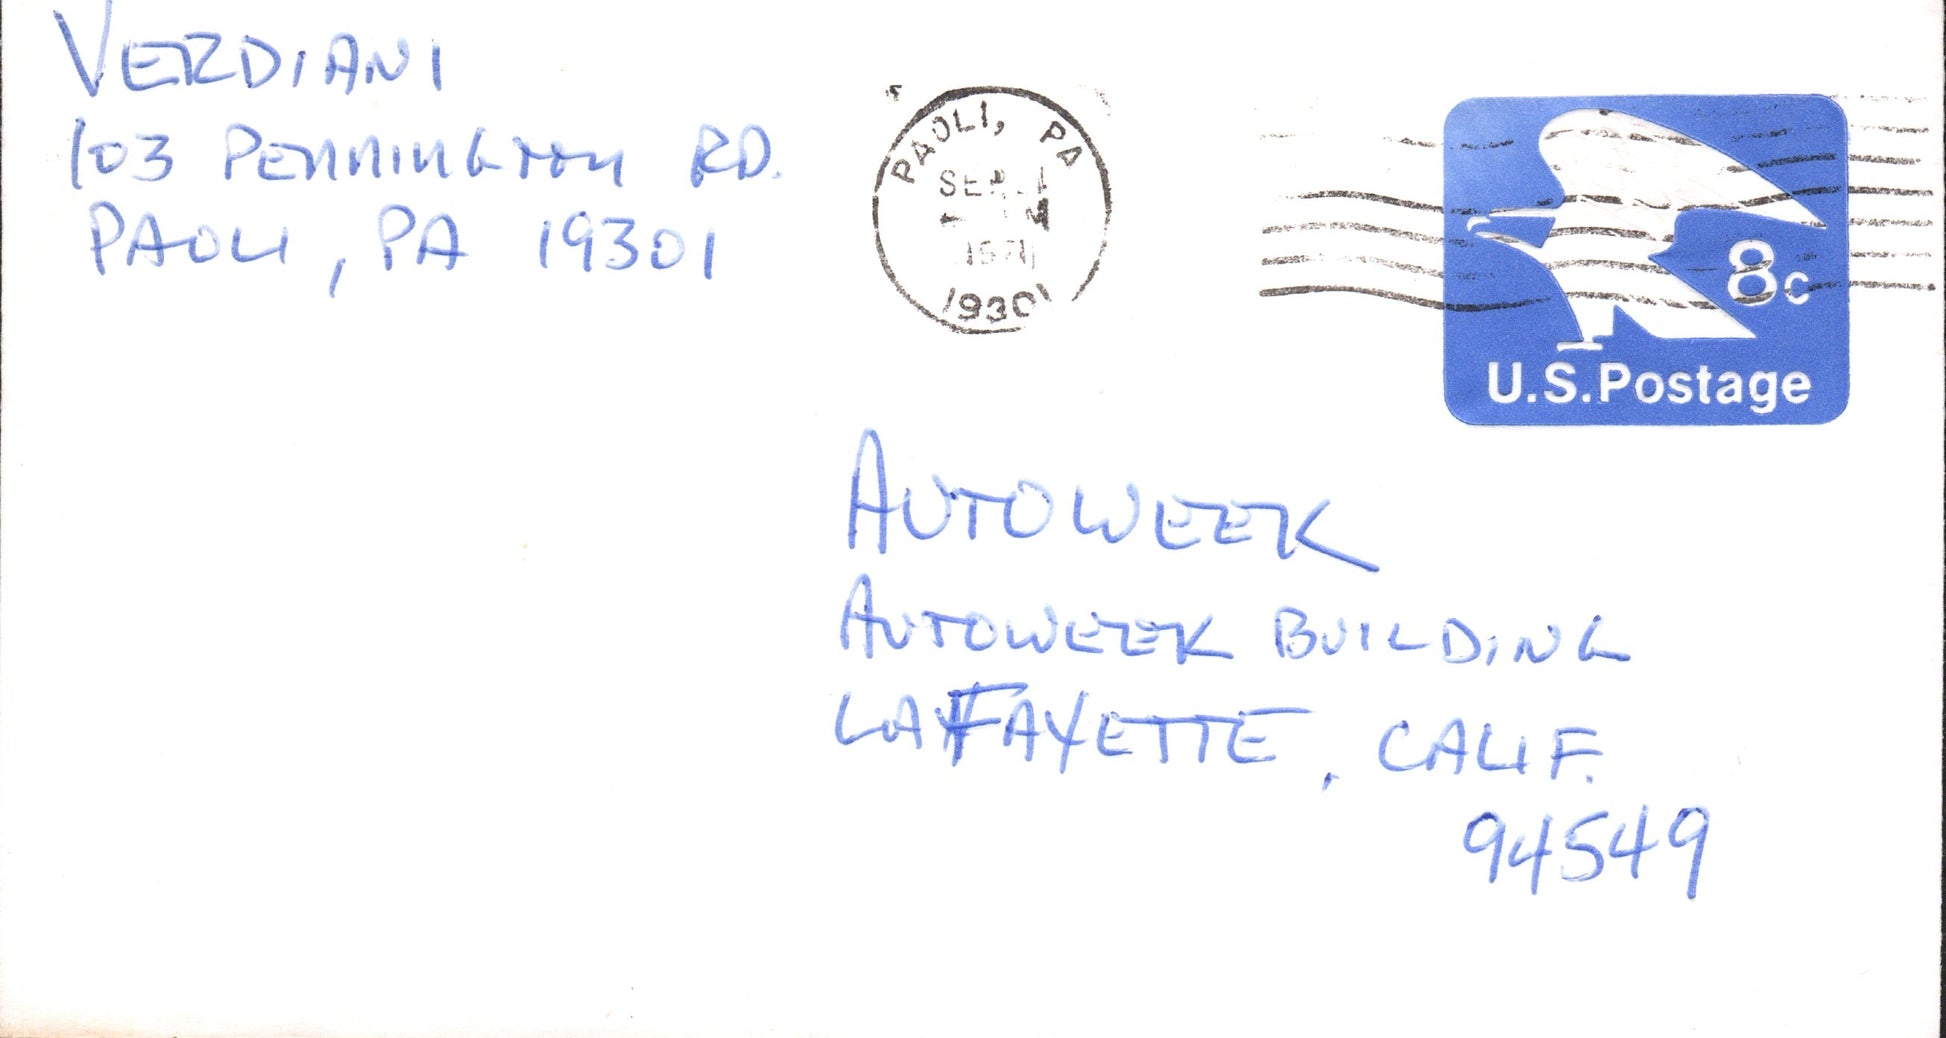 VERDIANI
103 PENNINGTON RD.
PAOLI, PA 19301
PAOLI, PA
SEP
19301
8c
U.S. Postage
AUTOWEEK
AUTOWEEK BUILDING
LAFAYETTE, CALIF.
94549